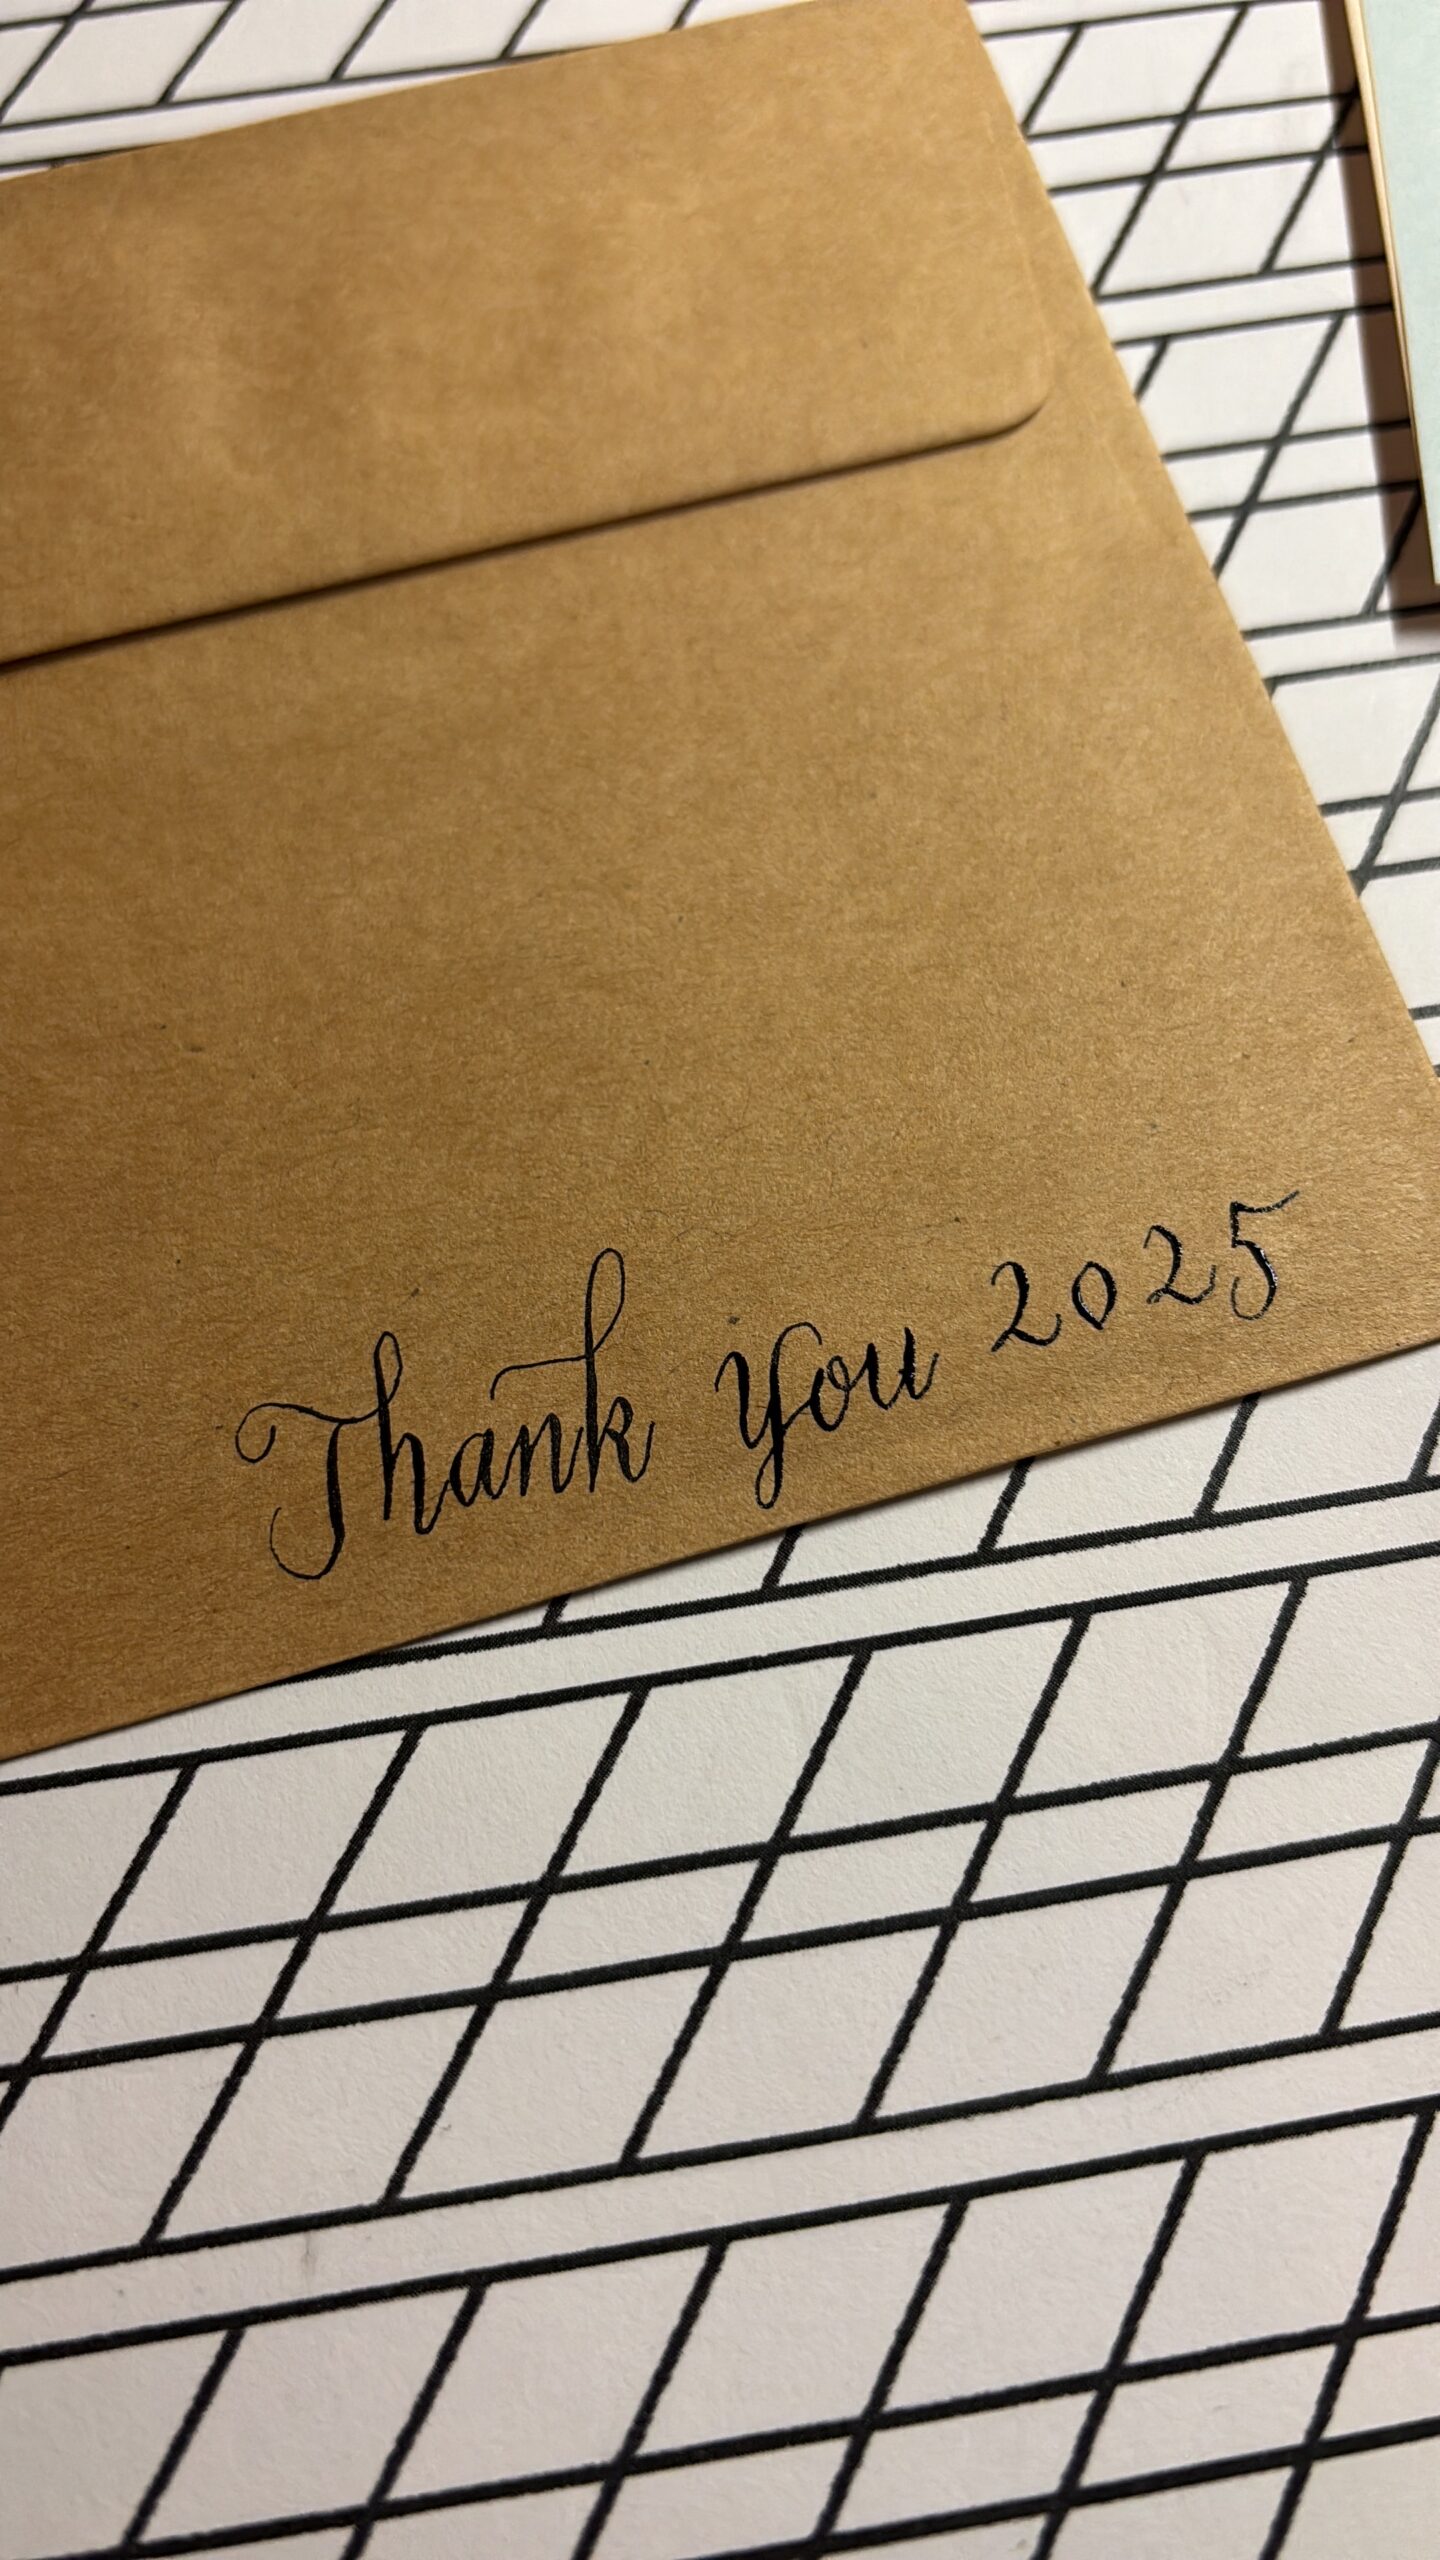 Thank you 2025